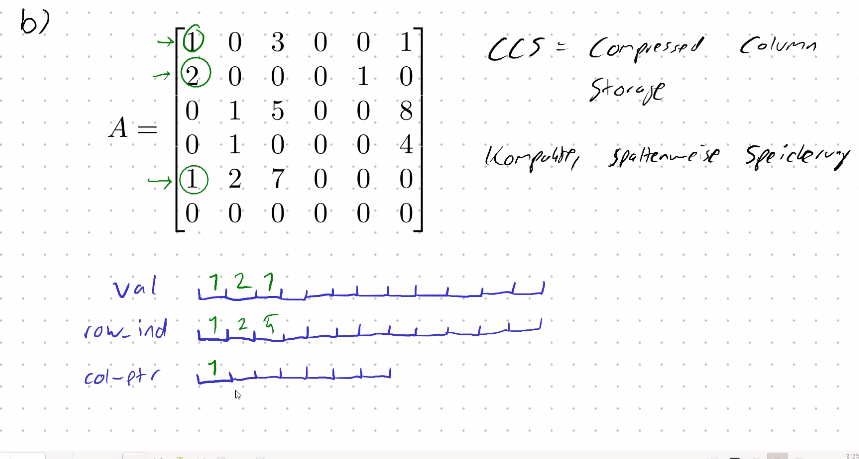 b)
A =
1 0 3 0 0 1
2 0 0 0 1 0
0 1 5 0 0 8
0 1 0 0 0 4
1 2 7 0 0 0
0 0 0 0 0 0
CCS = Compressed Column
Storage
Kompakte, spaltenweise Speicherung
val 1 2 1
row_ind 1 2 5
col-ptr 1